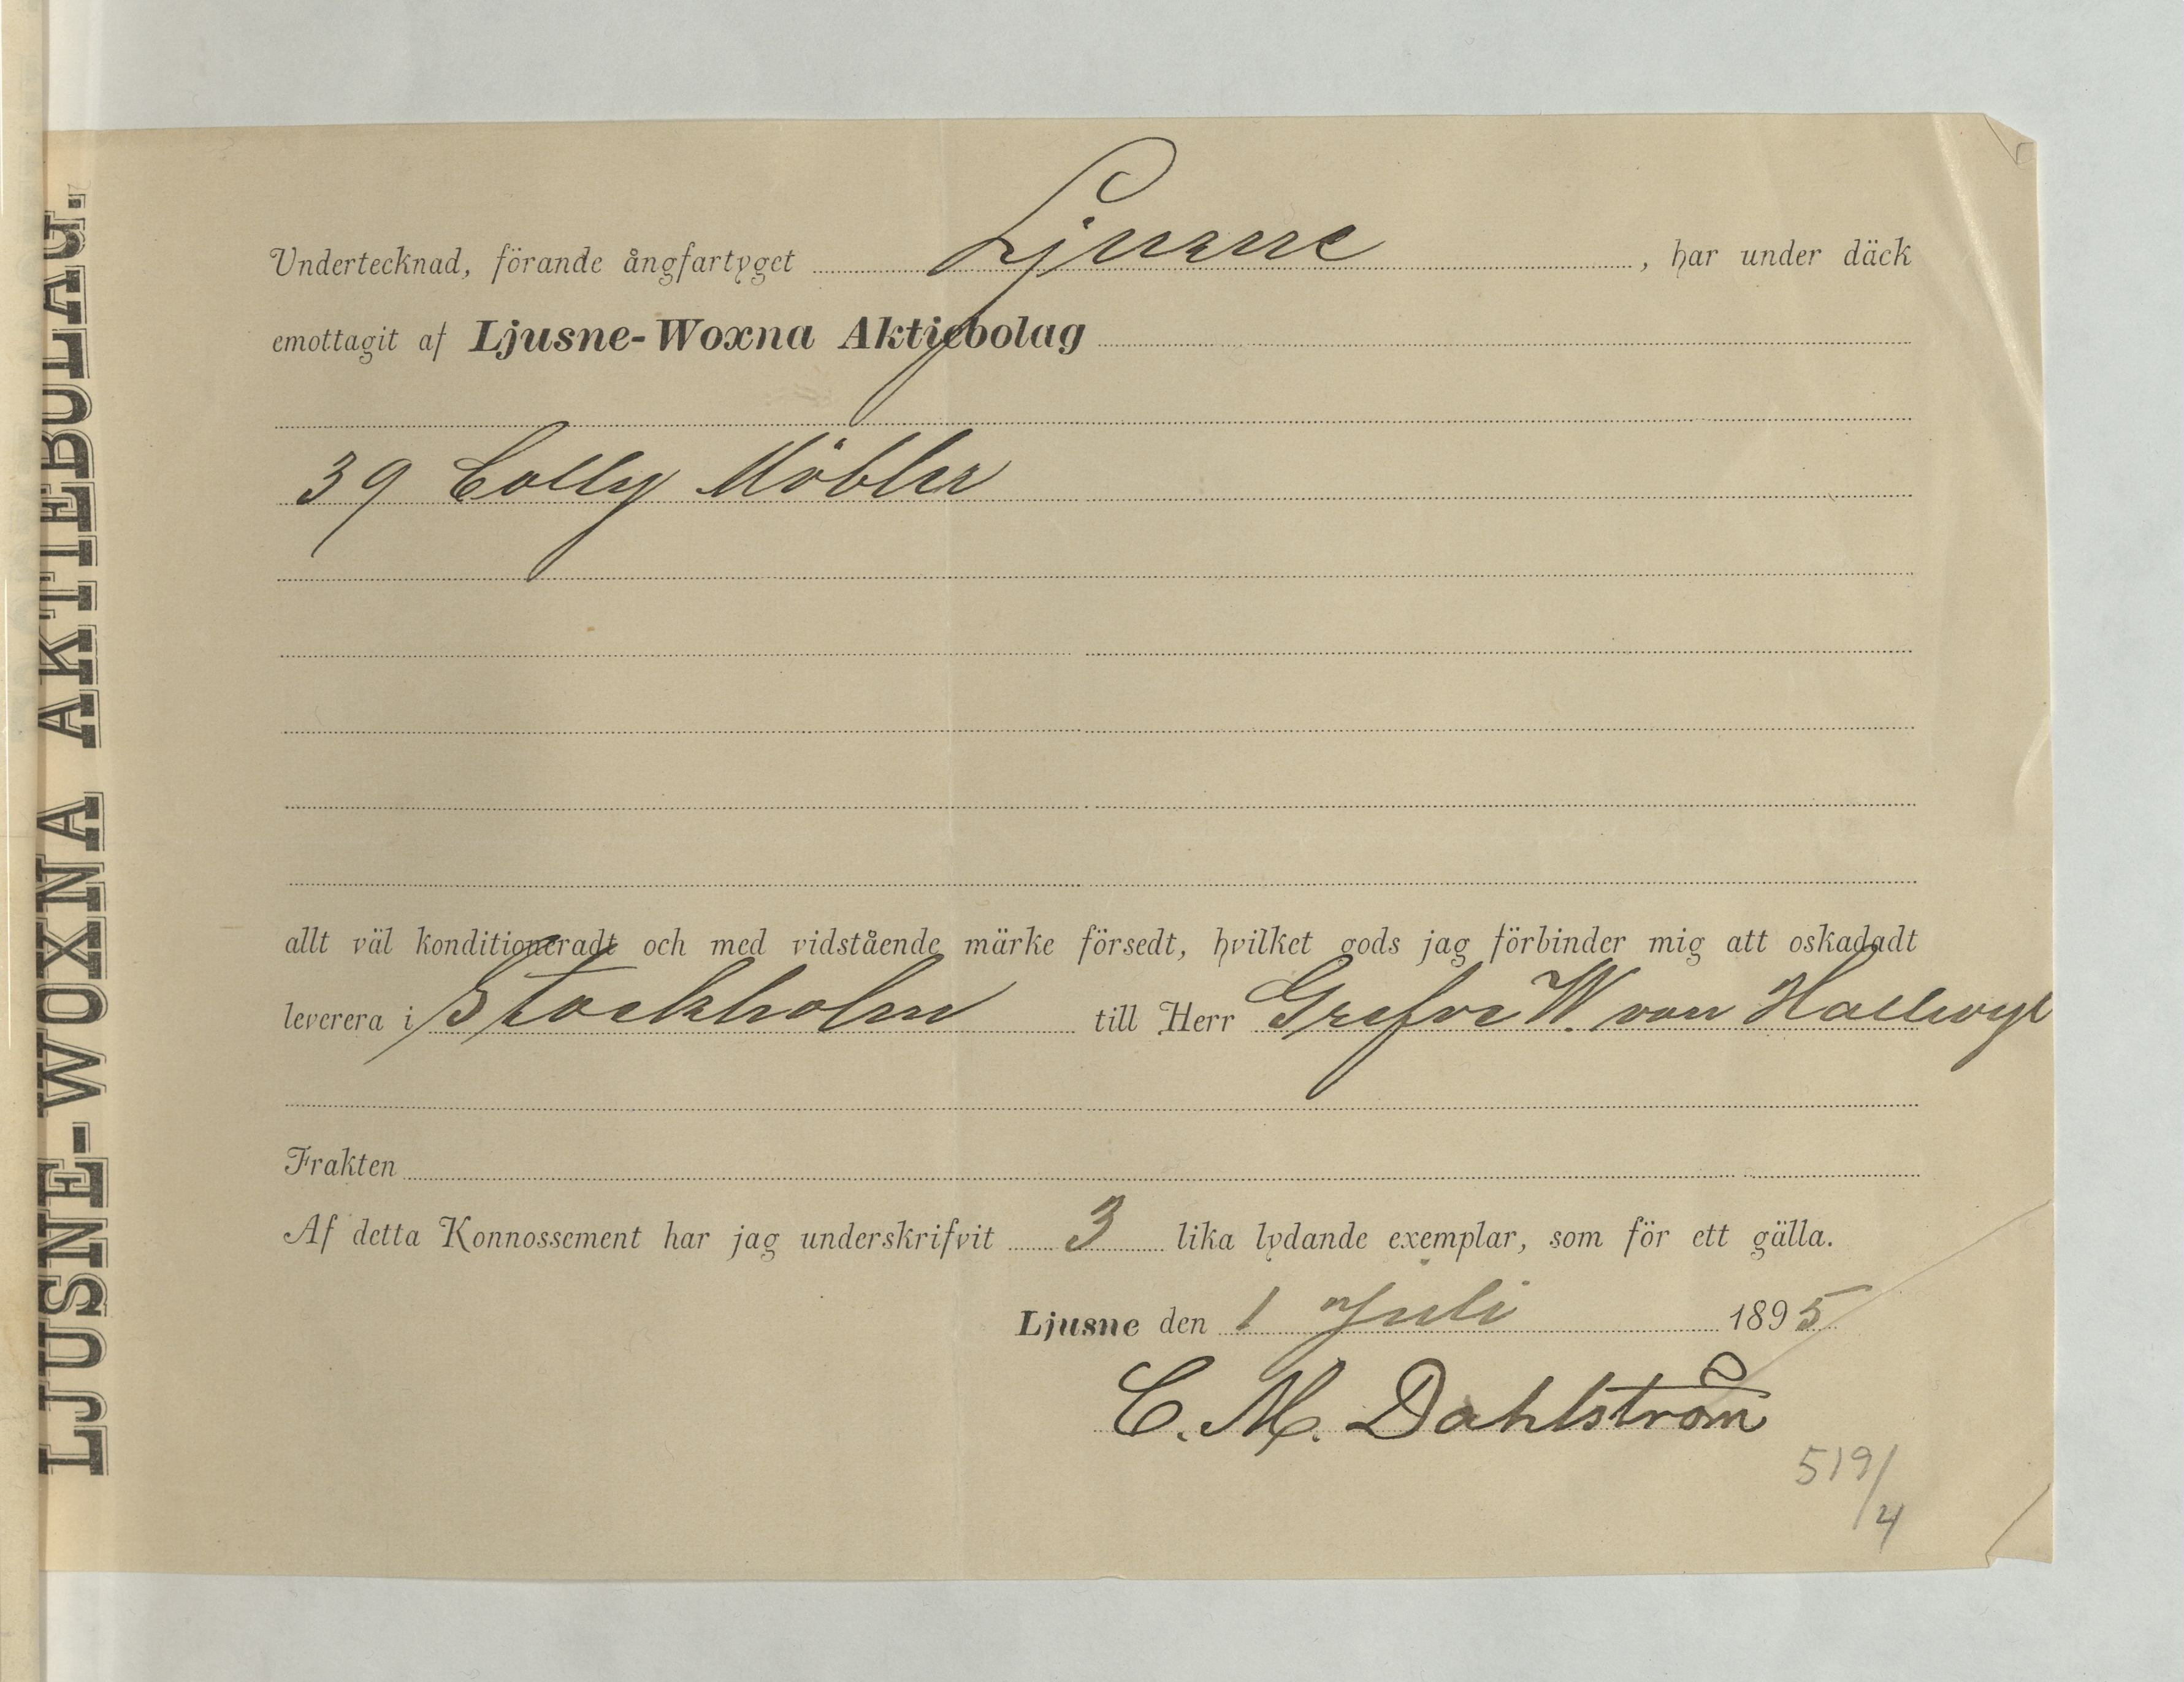 LJUSNE-WOXNA AKTIEBOLAG.
Undertecknad, förande ångfartyget Ljusne, har under däck
emottagit af Ljusne-Woxna Aktiebolag
39 Colly Möbler
allt väl konditioneradt och med vidstående märke försedt, hvilket gods jag förbinder mig att oskadadt
leverera i Stockholm till Herr Grefve W. von Hallwyl
Frakten
Af detta Konnossement har jag underskrifvit 3 lika lydande exemplar, som för ett gälla.
Ljusne den 1 Juli 1895
C. M. Dahlström
519/4